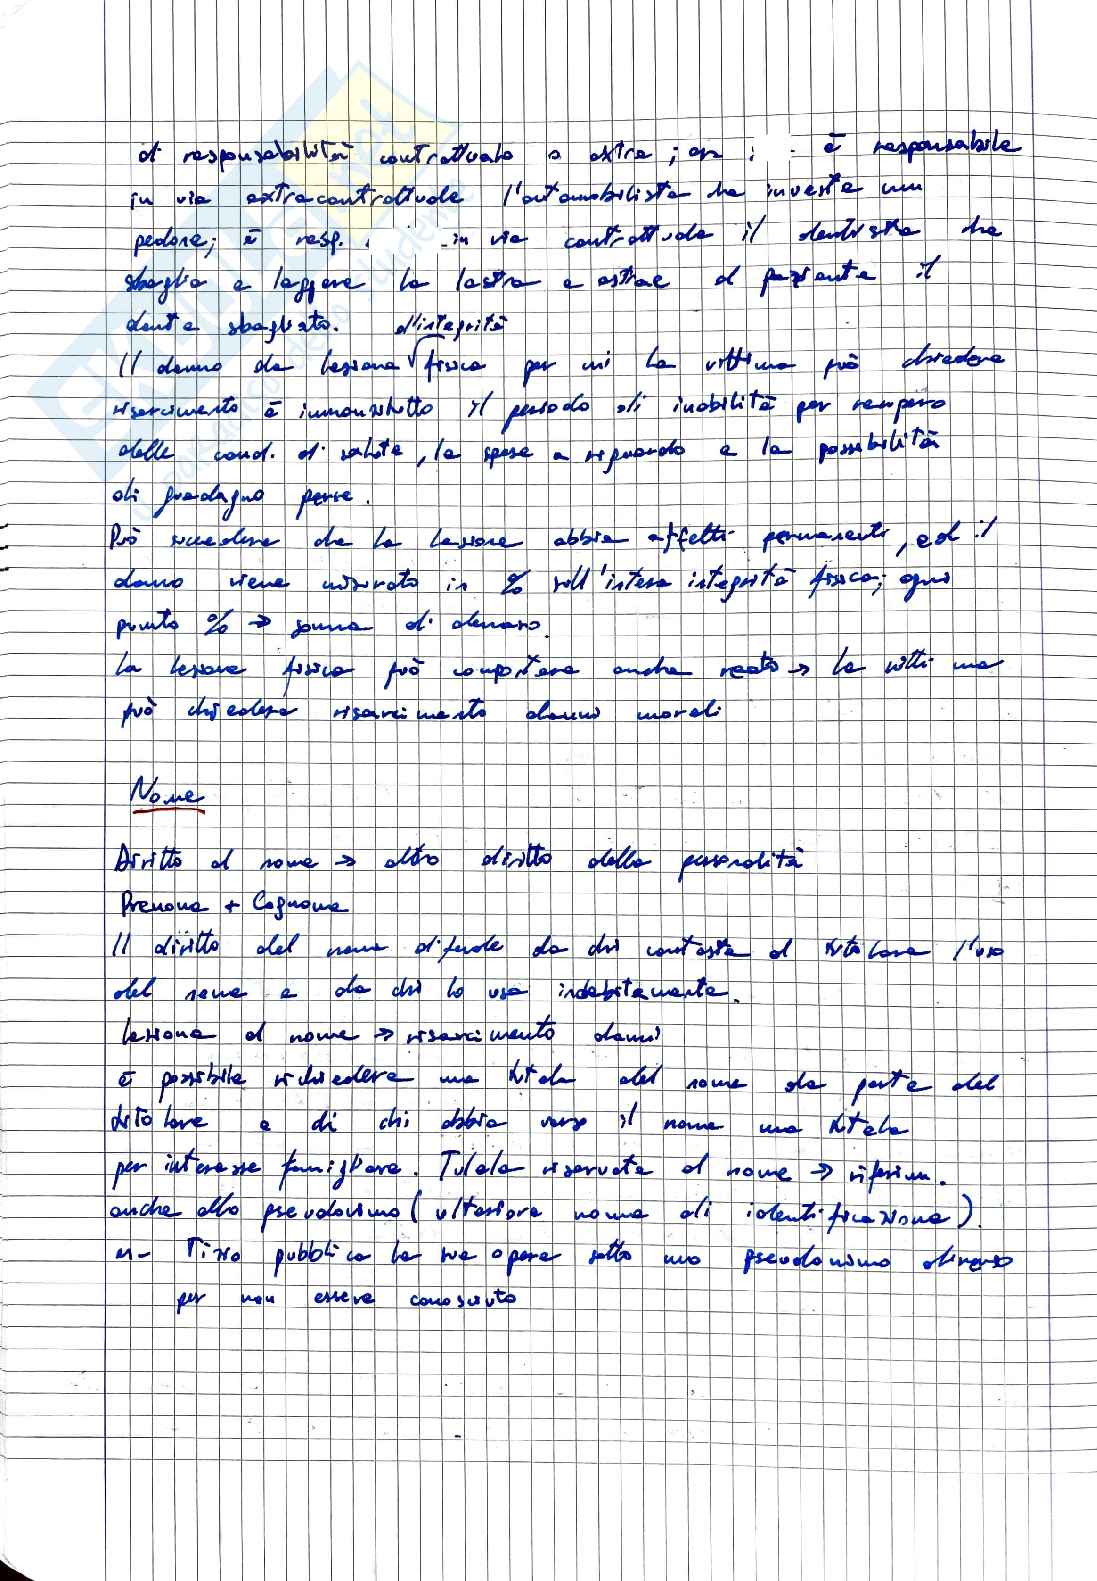 di responsabilità contrattuale o extra; es: è responsabile
in via extracontrattuale l'automobilista che investe un
pedone; è resp. in via contrattuale il dentista che
sbaglia a leggere la lastra e estrae al paziente il
dente sbagliato.
Il danno da lesione d'integrità fisica per cui la vittima può chiedere
risarcimento è innanzitutto il periodo di inabilità per recupero
delle cond. di salute, le spese a riguardo e la possibilità
di guadagno perse.
Può succedere che la lesione abbia effetti permanenti, ed il
danno viene misurato in % sull'intera integrità fisica; ogni
punto % → somma di denaro.
La lesione fisica può comportare anche reato → la vittima
può chiedere risarcimento danni morali
Nome
Diritto al nome → altro diritto della personalità
Prenome + Cognome
Il diritto del nome difende da chi contesta al titolare l'uso
del nome e da chi lo usa indebitamente.
Lesione al nome → risarcimento danni
è possibile richiedere una tutela del nome da parte del
titolare e di chi abbia verso il nome una tutela
per interesse famigliare. Tutela riservata al nome → riferim.
anche allo pseudonimo (ulteriore nome di identificazione).
es- Tizio pubblica le sue opere sotto uno pseudonimo diverso
per non essere conosciuto